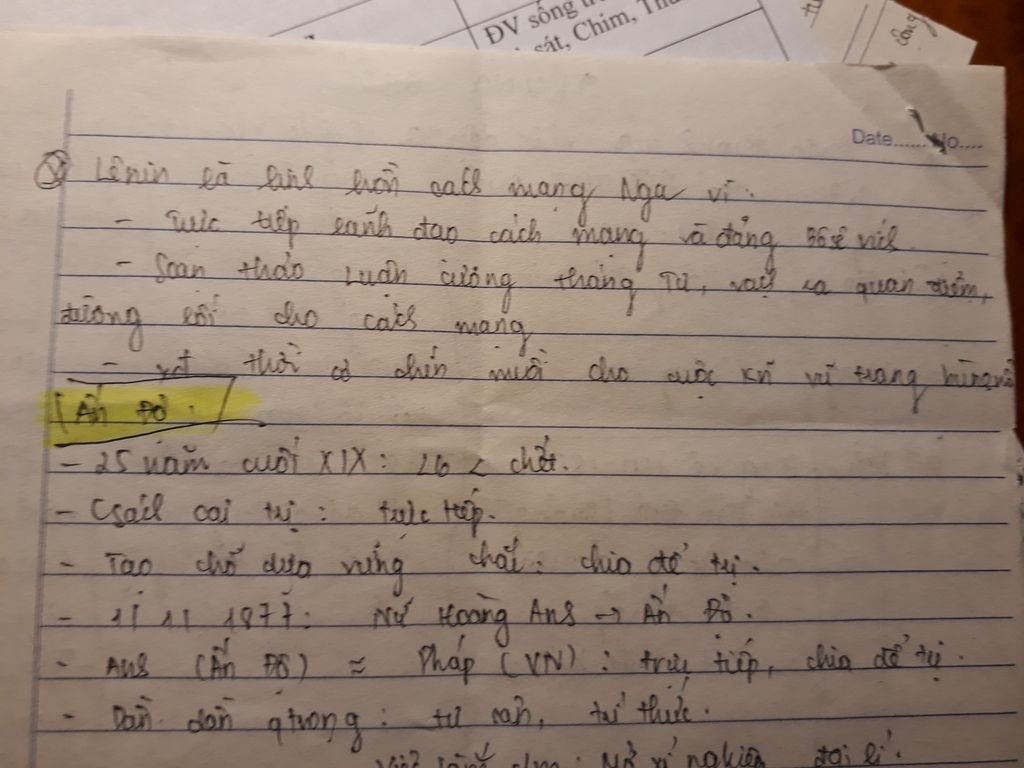 ĐV sống tr
sát, Chim, Th
Date...... No....
Lênin là linh hồn cách mạng Nga vì:
- Trực tiếp lãnh đạo cách mạng và đảng Bôsêvích
- Soạn thảo Luận cương tháng Tư, vạch ra quan điểm,
đường lối cho cách mạng
- thời cơ chín muồi cho cuộc KN vũ trang
Ấn Độ:
- 25 năm cuối XIX: 26 < chết.
- Csách cai trị: trực tiếp.
- Tạo chỗ dựa vững chắc: chia để trị.
- 1/1/1877: Nữ Hoàng Anh → Ấn Độ.
- Anh (Ấn Độ) ≈ Pháp (VN): trực tiếp, chia để trị.
- Dần dần qtrọng: tư sản, trí thức.
Mở xí nghiệp, đại lí.